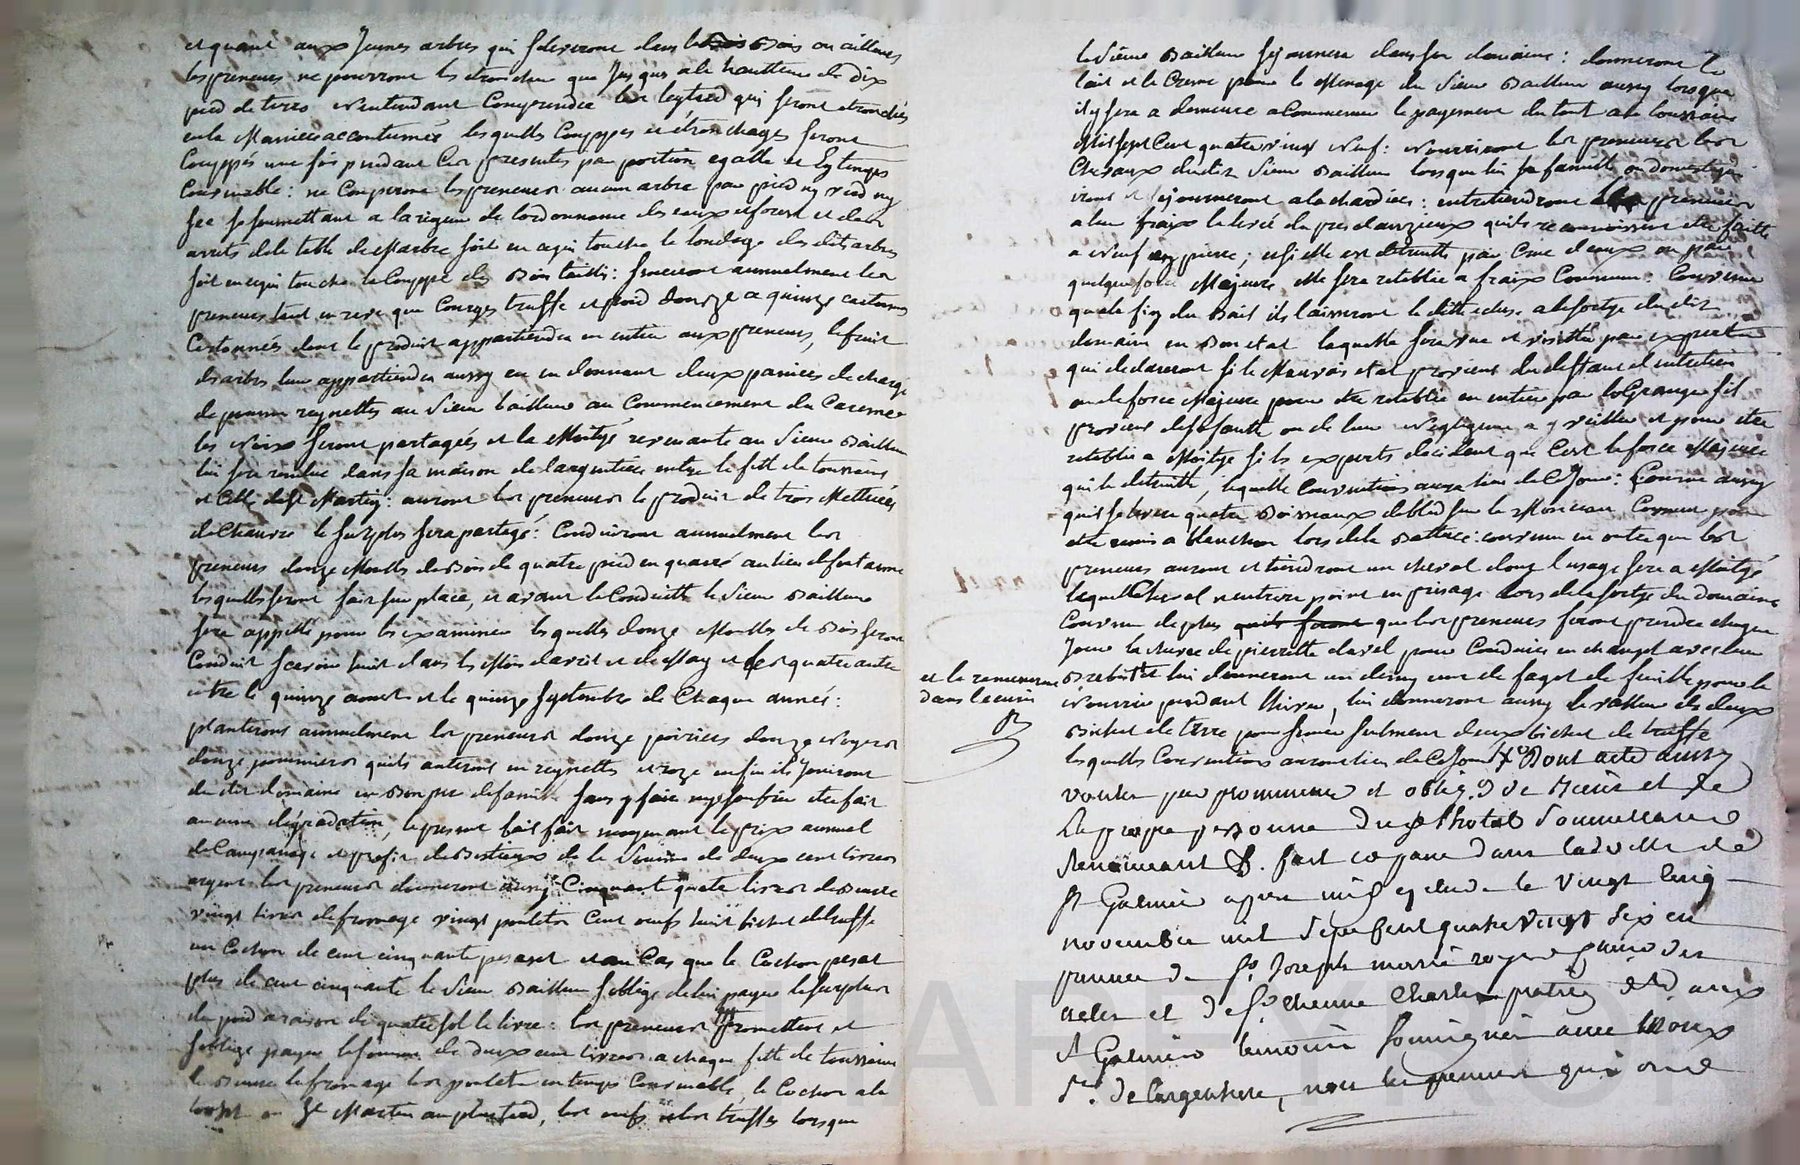 et quant aux Jeunes arbres qui seleveront dans le Bois ou ailleurs
les preneurs ne pourront les etroncher que Jusqu'a la hautteur de dix
pied de terre nentendant Comprendre les qui seront etronchés
en la Maniere accoutumée lesquells Couppes et étronchages seront
Couppés une fois pendant les presentes par portion egalle et en temps
Convenable : ne Couperont les preneurs aucun arbre par pied ny verd ny
sec se soumettant a la rigeur de lordonnance des eaux et forest et des
arrets de la table de Marbre soit en ce qui touche le tondage des dits arbres
soit en ce qui touche la Couppe des Bois taillis : semeront annuelment les
preneurs tant en rave que Courges truffe et poid douze a quinze cartonnes
Cartonnées dont le produit appartiendra en entier aux preneurs, le fruit
des arbres leur appartiendra aussy en en donnant deux paniers de charge
de pomme reynettes au Sieur bailleur au Commencement du Careme
les Noix seront partagées et la Moityé revenante au Sieur Bailleur
lui sera rendue dans sa maison de largentiere entre la fette de toussaint
et Celle de St Martin : auront les preneurs le produit de trois Metterées
de Chanvre le surplus sera partagé : Conduiront annuelment les
preneurs douze Moulles de Bois de quatre pied en quarré au lieu de
lesquells seront fait sur place, et avant la Conduitte le Sieur Bailleur
sera appellé pour les examiner lesquelles douze Moulles de Bois seront
Conduit scavoir huit dans les Mois davril et de May et les quatre autre
entre le quinze aout et le quinze Septembre de Chaque année :
planteront annuelment les preneurs douze poiriers douze noyers
douze pommiers quils anteront en reynettes et roze enfin ils Jouiront
du dit domaine en Bon pere de famille sans y faire ny souffrir etre fait
aucune dégradation, le present bail fait moyennant le prix annuel
de Campanage et profit de Bestiaux de la Somme de deux cent livres
argent les preneurs donneront aussy Cinquante quatre livres de Beurre
vingt livres de fromage vingt poulets Cent oeufs huit bichet de truffe
un Cochon de cent cinquante pesant et au Cas que le Cochon pesat
plus de cent cinquante le Sieur Bailleur soblige de lui payer le surplus
du poid a raison de quatre sol la livre : les preneurs promettent et
soblige payer la somme de deux cent livres a chaque fette de toussaint
le Beurre le fromage les poulets en temps Convenable, le Cochon a la
tousst ou St Martin au plus tard, les oeufs et les truffes lorsque
le Sieur Bailleur séjournera dans son domaine : donneront le
lait et la Creme pour le Menage du Sieur Bailleur aussy lorsque
il y sera a demeure a Commencer le payement du tout a la toussaint
Mil sept Cent quatre vingt Neuf : nourriront les preneurs les
Chevaux du dit Sieur Bailleur lorsque lui sa famille ou domestiques
iront et sejourneront a la chardiere : entretiendront les preneurs
a leur fraix la levée du pres quils reconnoissent etre faitte
a Neuf en pierre ; et si elle est detruitte par Crue deaux ou par
quelque force Majeure elle sera retablie a fraix Commun : Convenu
qua la fin du Bail ils laisseront la ditte ecluse a la sortye du dit
domaine en Bon etat laquelle sera vue et visittée par experts
qui declareront si le Mauvais etat provient du deffaut dentretien
ou de force Majeure pour etre retablie en entier par le Granger sil
provient de sa faute ou de leur Negligence a y veiller et pour etre
retablie a Moitye si les experts decident que Cest la force Majeure
qui la detruitte, laquelle Convention aura lieu de Ce Jour : Convenu aussy
quil se levera quatre Boisseaux de bled sur le Monceau Commun pour
etre remis a blancher lors de la Battue : convenu en outre que les
preneurs auront et tiendront un cheval dont lusage sera a Moityé
lequel Cheval nentrera point en prisage lors de la sortye du domaine
Convenu de plus quils feront que les preneurs feront prendre chaque
Jour la chevre de pierrette clavel pour Conduire en champt avec leur
et la remeneront
dans lecurie
Brebis et lui donneront un demy cent de fagot de feuille pour la
nourrir pendant lhiver, lui donneront aussy la valleur de deux
Bichet de terre pour semer seulment deux bichet de truffe
lesquells Conventions auront lieu de Ce Jour Dont acte ainsy
voulu par promesse et oblig.
la propre personne dud lhotel Soumettant
Renoncant &. fait et passé dans la ville de
St Galmier apres midy etude le vingt Cinq
novembre mil Sept Cent quatre vingt dix en
presence de Sr Joseph marie roy
et de Sr etienne Charles
St Galmier temoins soussignés avec Mr roux
Sr. de largentiere, non les preneurs qui ont